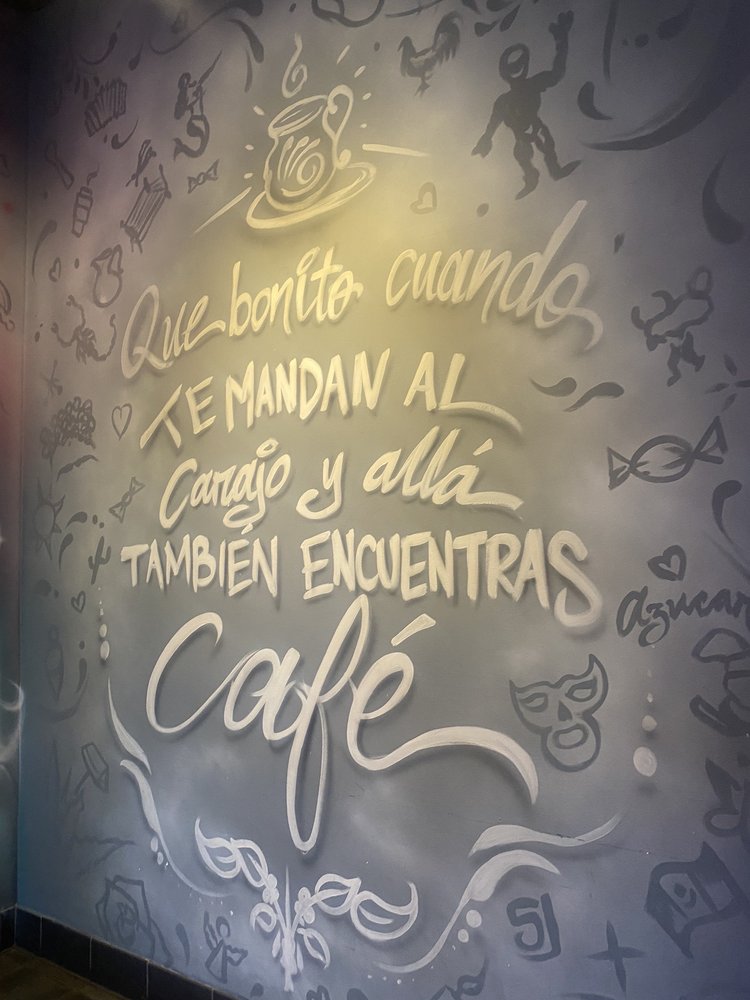 Que bonito cuando
TE MANDAN AL
Carajo y allá
TAMBIÉN ENCUENTRAS
Café
azucar